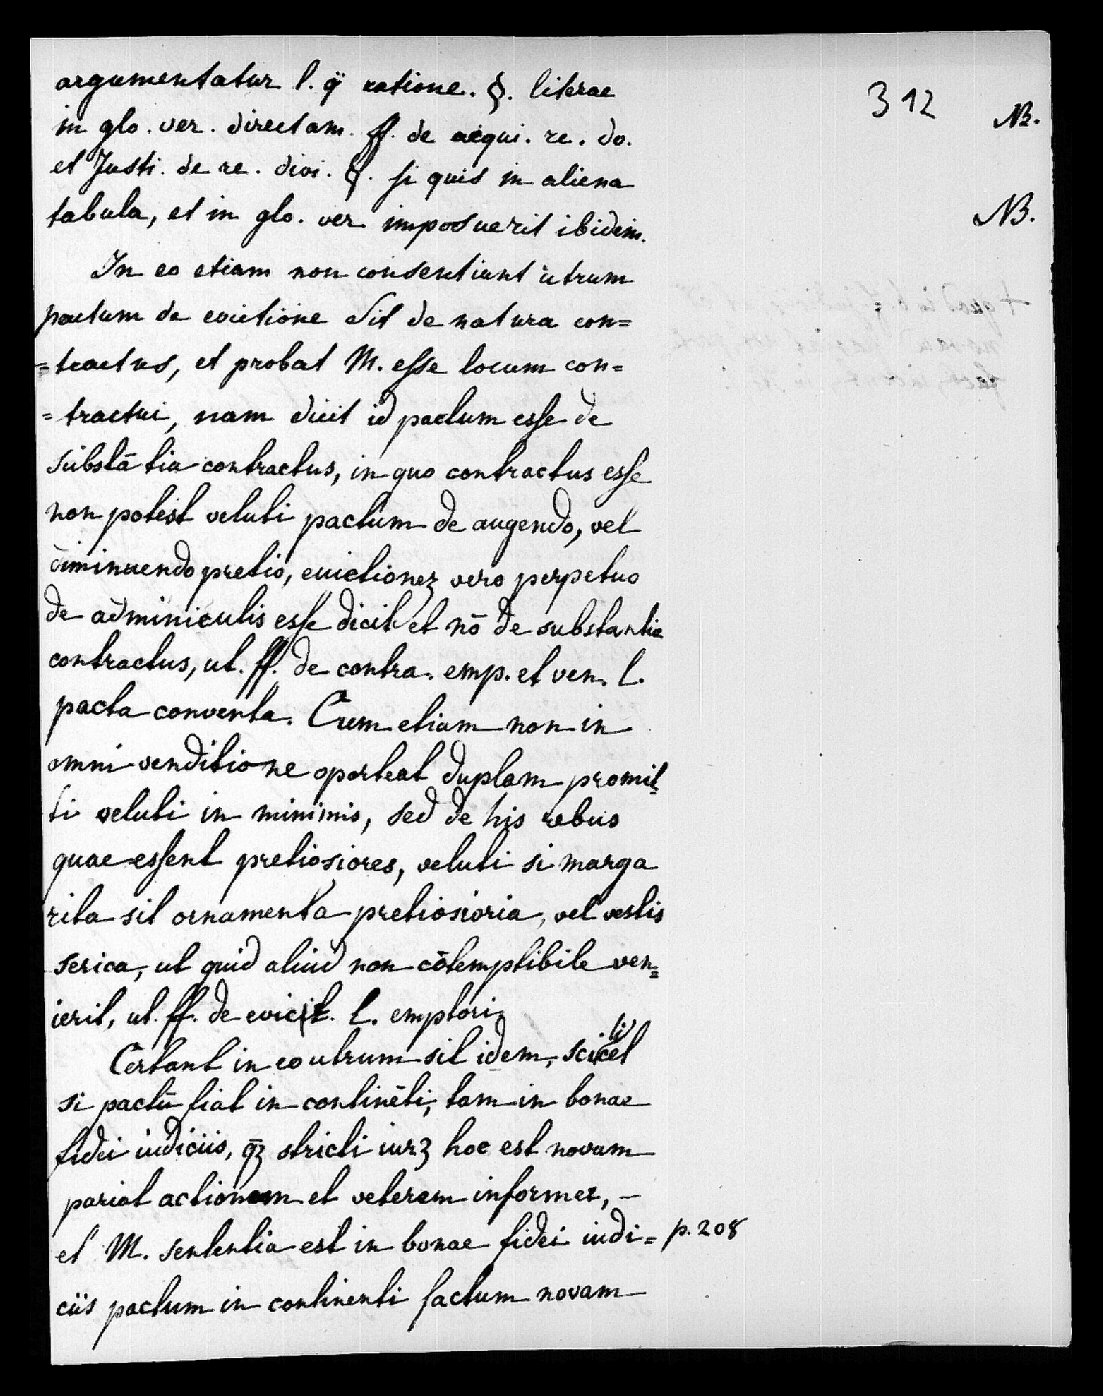 312
NB.
argumentatur l. q̃ ratione. §. literae
in glo. ver. directam. ff. de acqui. re. do.
et Justi. de re. divi. §. si quis in aliena
NB.
tabula, et in glo. ver imposuerit ibidem.
In eo etiam non consentiunt utrum
pactum de evictione sit de natura con=
=tractus, et probat M. esse locum con=
=tractui, nam dicit id pactum esse de
substātia contractus, in quo contractus esse
non potest veluti pactum de augendo, vel
diminuendo pretio, euictionez vero perpetuo
de adminiculis esse dicit et nō de substantia
contractus, ut. ff. de contra. emp. et ven. l.
pacta conventa. Cum etiam non in
omni venditione oporteat duplam promit=
ti veluti in minimis, sed de his rebus
quae essent pretiosiores, veluti si marga
rita sit ornamenta pretiosioria, vel vestis
serica, ut quid aliud non cōtemptibile ven=
ierit, ut. ff. de evict. l. emptori.
Certant in eo utrum sit idem, scilicet
si pactū fiat in continēti, tam in bonae
fidei iudiciis, q̄z stricti iurz hoc est novam
pariat actionem et veterem informet, –
et M. sententia est in bonae fidei iudi= p. 208
ciis pactum in continenti factum novam